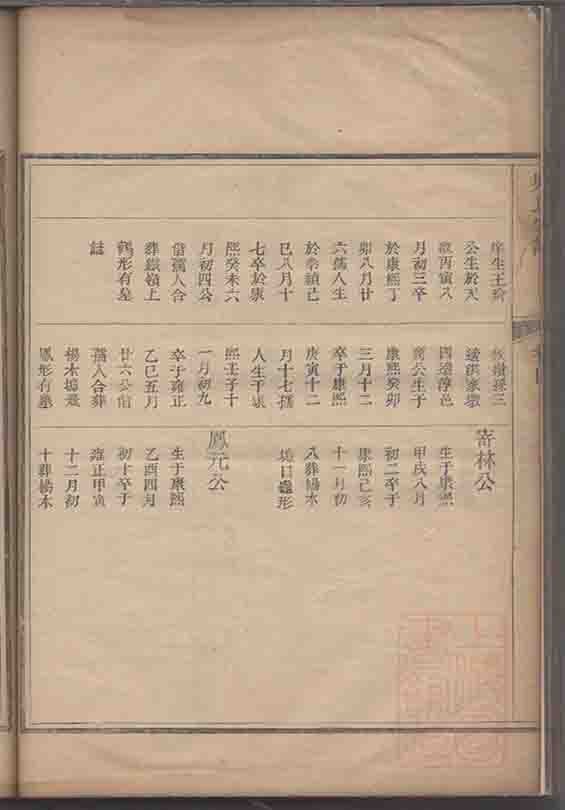 公生於天
啟丙寅八
月初三卒
於康熙丁
卯八月廿
六孺人生
於崇禎己
巳八月十
七卒於康
熙癸未六
月初四公
偕孺人合
葬嶽嶺上
鶴形有墓
誌
四遷淳邑
公生于
康熙癸卯
三月十二
卒于康熙
庚寅十二
月十七孺
人生于康
熙壬子十
一月初九
卒于雍正
乙巳五月
廿六公偕
孺人合葬
楊木塢飛
鳳形有墓
寄林公
生于康熙
甲戌八月
初二卒于
康熙己亥
十一月初
八葬楊木
塢口龜形
鳳元公
生于康熙
乙酉四月
初十卒于
雍正甲寅
十二月初
十葬楊木